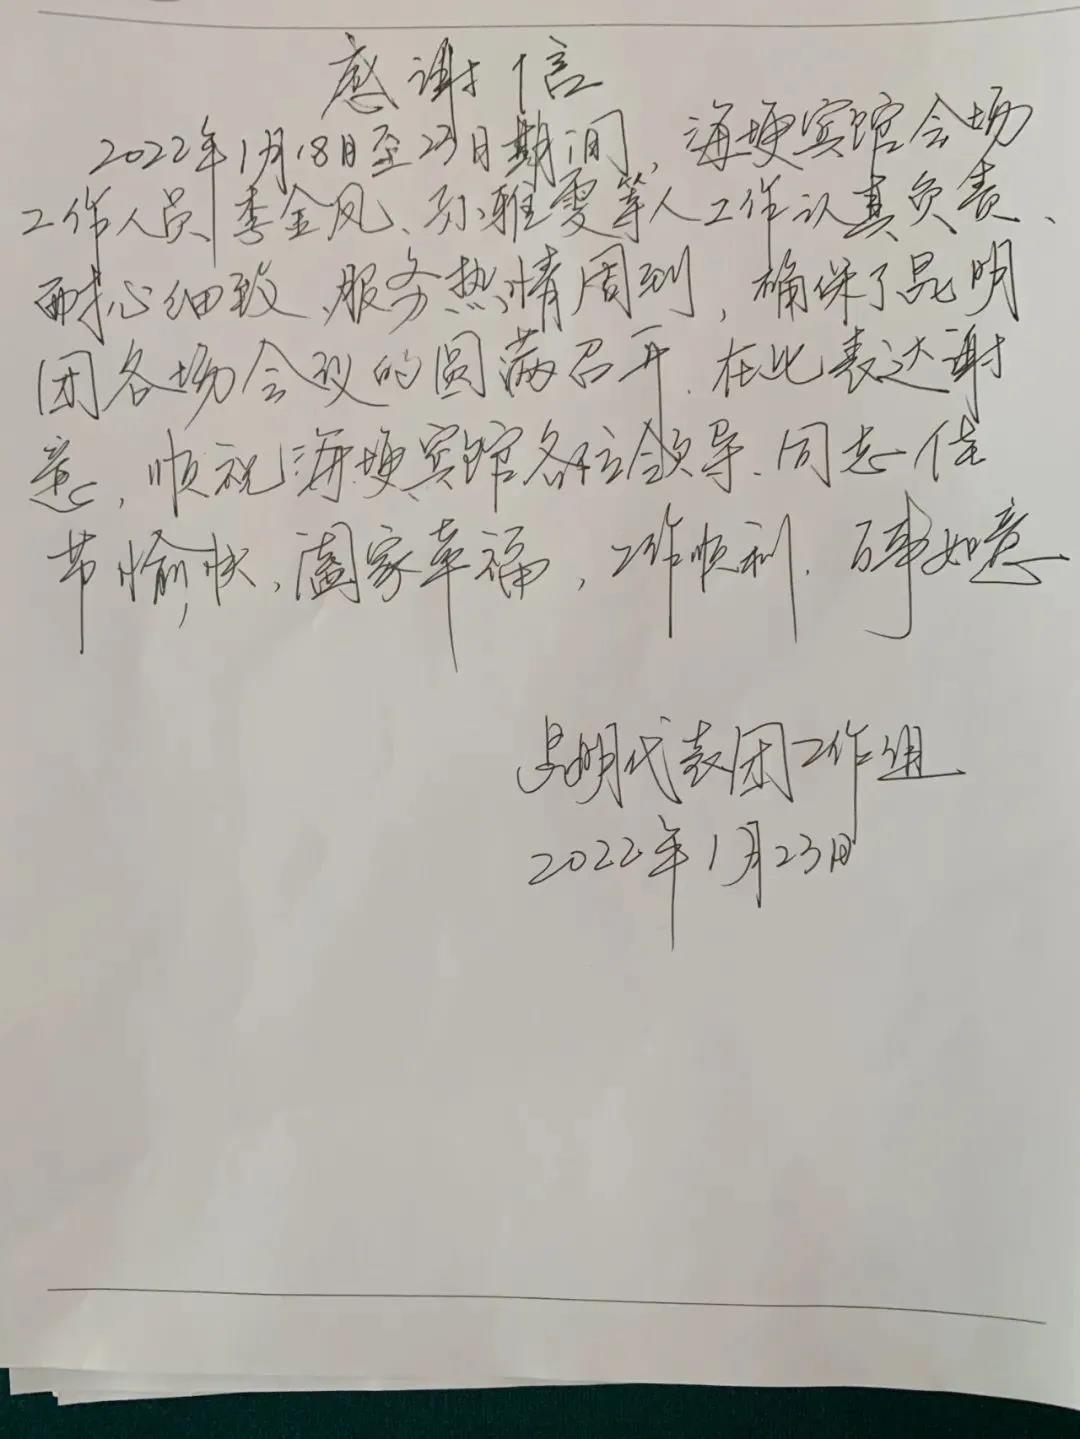 感谢信
2022年1月18日至23日期间，海埂宾馆会场
工作人员李金凤、孙雅雯等人工作认真负责、
耐心细致、服务热情周到，确保了昆明
团各场会议的圆满召开。在此表达谢
意，顺祝海埂宾馆各位领导、同志佳
节愉快，阖家幸福，工作顺利，万事如意
昆明代表团工作组
2022年1月23日